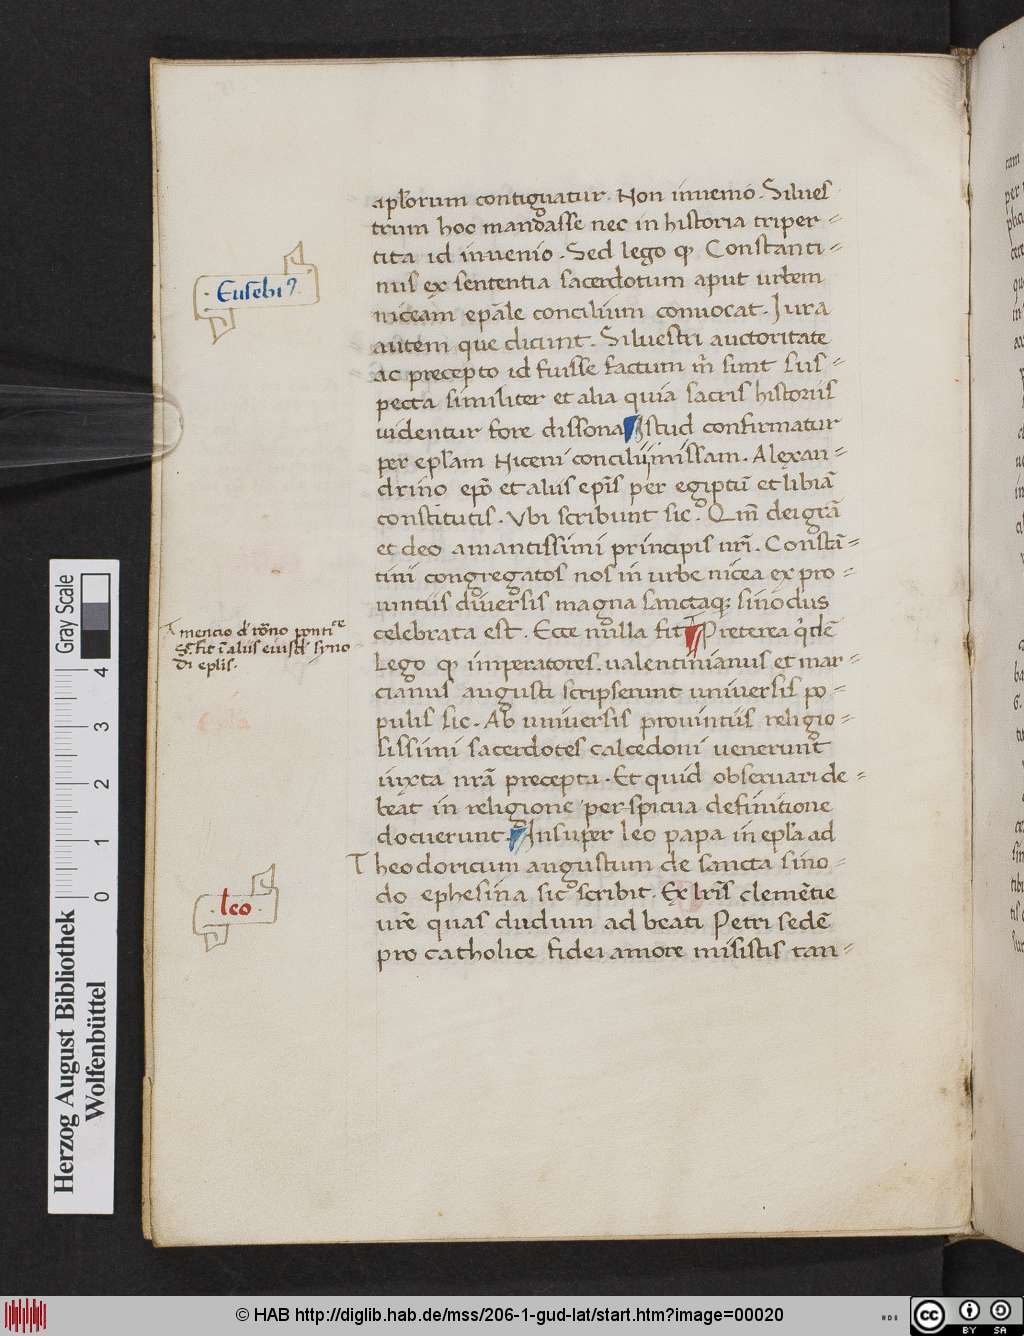 apl'orum contiguatur. Non inuenio. Silues
trum hoc mandasse nec in historia triper-
tita id inuenio. Sed lego qꝫ Constanti-
nus ex sententia sacerdotum aput urbem
niceam epāle concilium conuocat. Iura
autem que dicunt. Siluestri auctoritate
ac precepto id fuisse factum m̄ sunt sus-
pecta similiter et alia quia sacris historiis
uidentur fore dissona Istud confirmatur
per epl'am Niceni concilii missam. Alexan-
drino epō et aliis epīs per egiptū et libiā
constitutis. Vbi scribunt sic. Qm̄ dei grā
et deo amantissimi principis nr̄i. Constā-
tini congregatos nos in urbe nicea ex pro-
uintiis diuersis magna sanctaqꝫ sinodus
celebrata est. Ecce nulla fit Preterea q'dē
Lego qꝫ imperatores. ualentinianus et mar-
cianus augusti scripserunt uniuersis po-
pulis sic. Ab uniuersis prouintiis religio-
sissimi sacerdotes calcedoni uenerunt
iuxta nrā precepta. Et quid obseruari de-
beāt in religione perspicua definitione
docuerunt. Insuper leo papa in epl'a ad
Theodoricum augustum de sancta sino-
do ephesina sic scribit. Ex lr̄is clemētie
ur̄e quas dudum ad beati Petri sedē
pro catholice fidei amore misistis tan-
Eusebiꝰ
mencio d' rōno pontice
fit ī aliis eiusd' syno
di epl'is.
leo
Gray Scale
4 3 2 1 0
Herzog August Bibliothek
Wolfenbüttel
© HAB http://diglib.hab.de/mss/206-1-gud-lat/start.htm?image=00020
cc BY SA